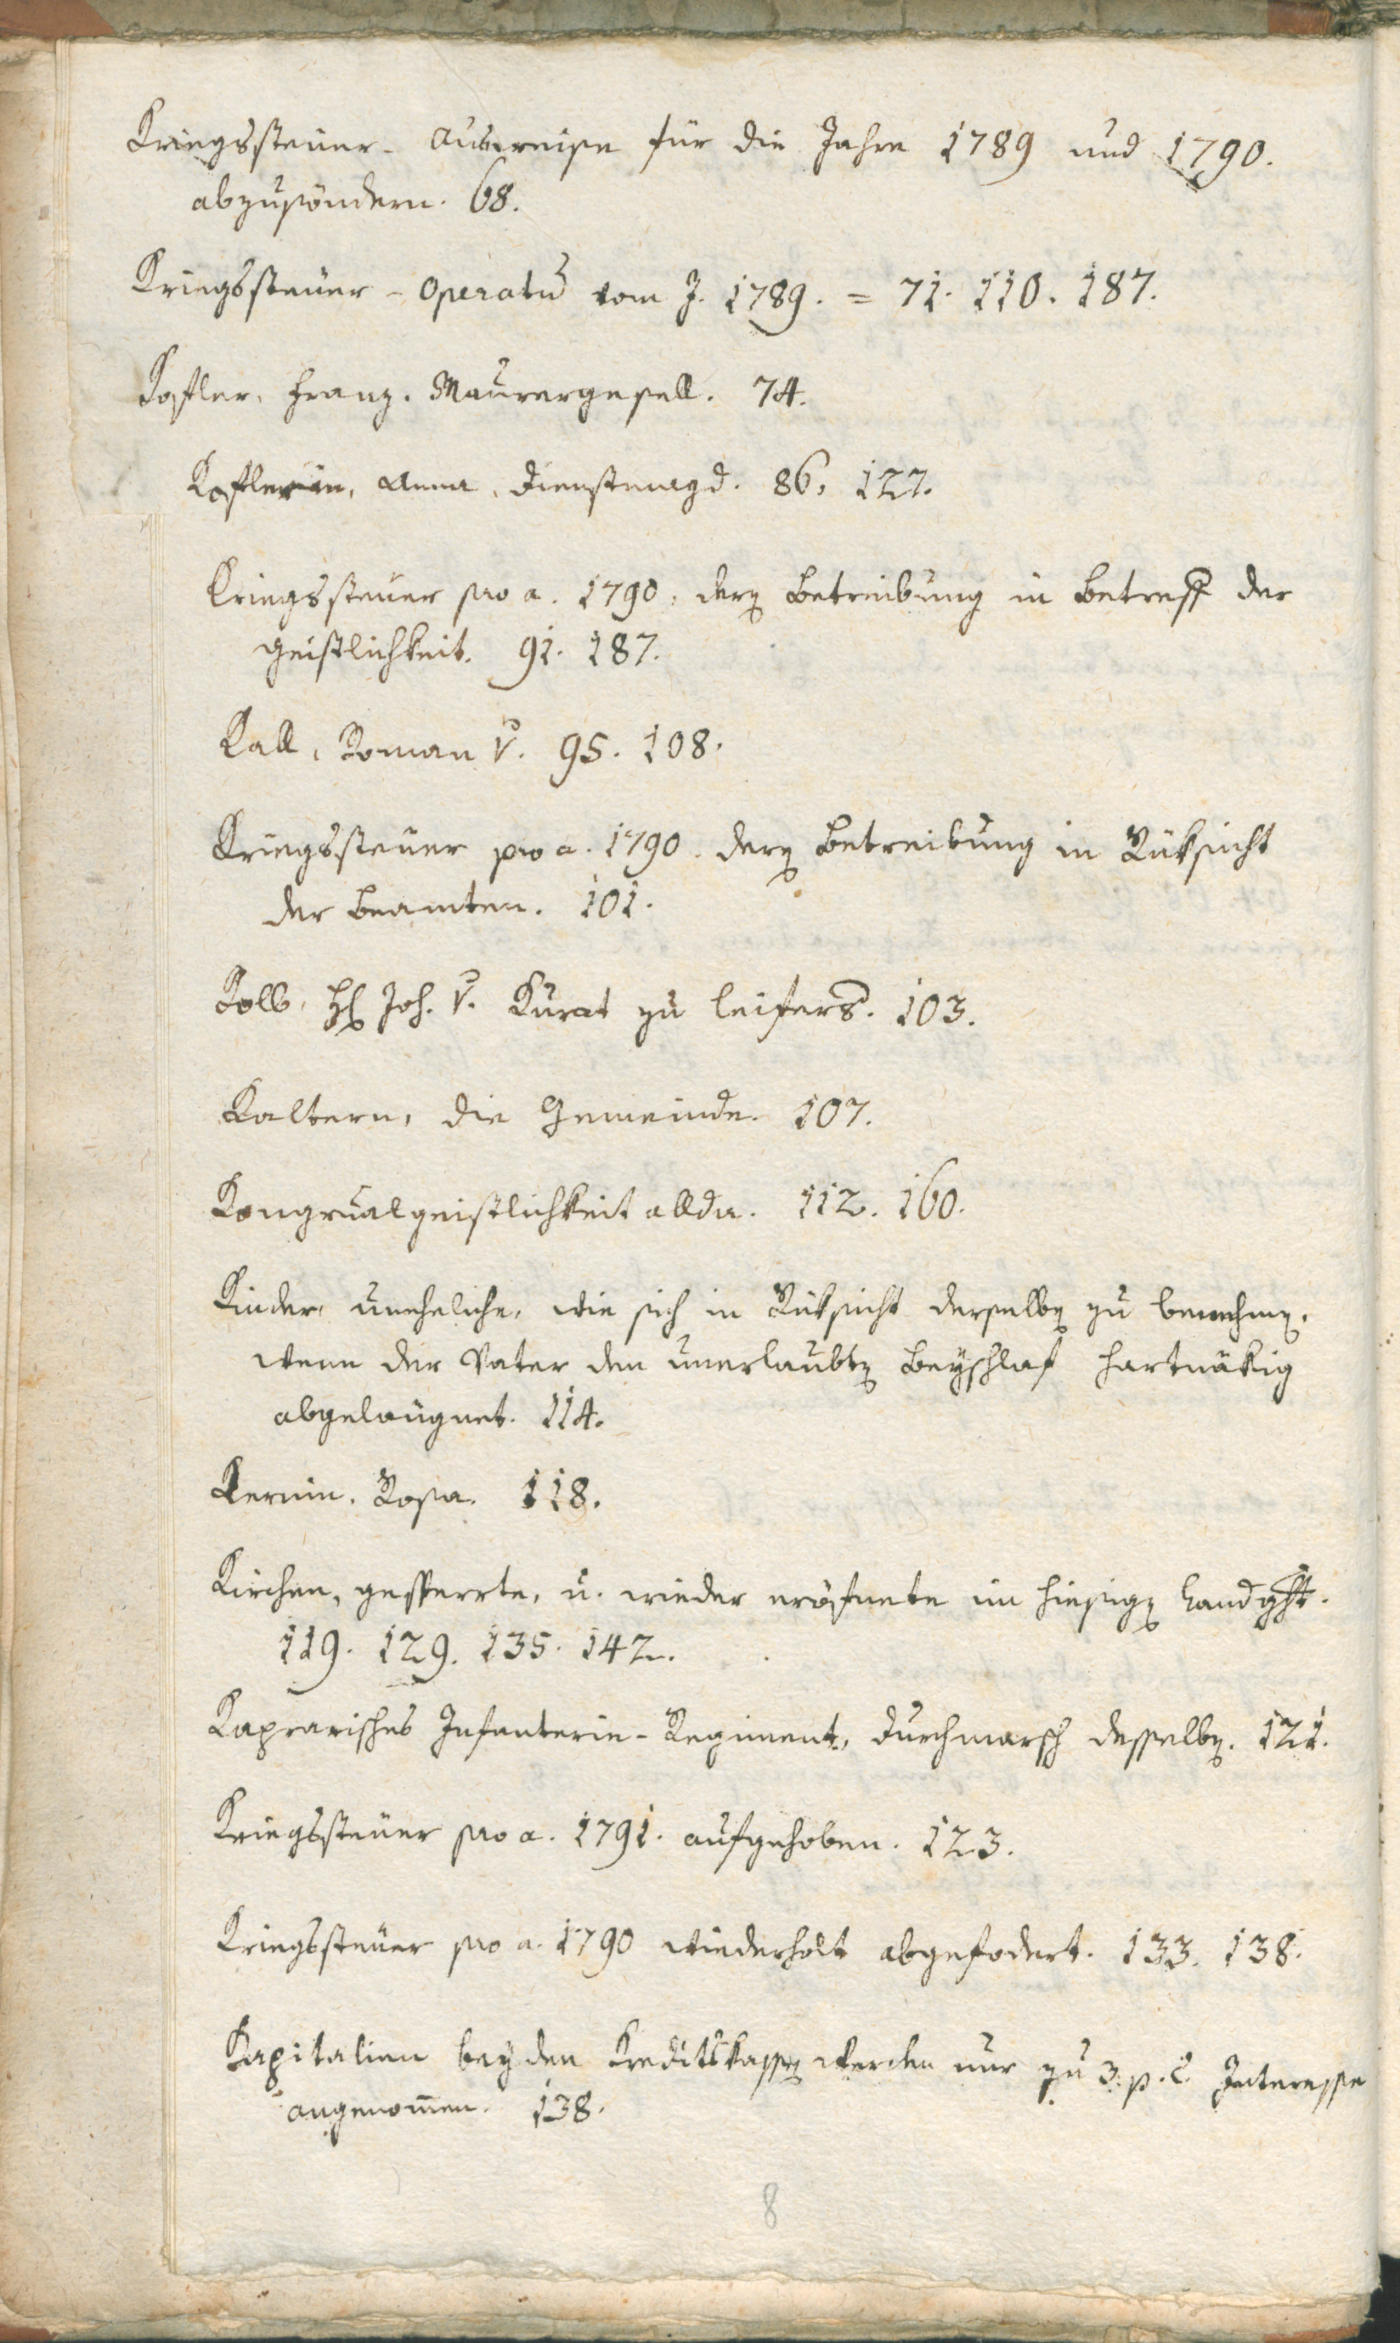 Kriegssteuer-Ausweise für die Jahre 1789 und 1790.
abzusöndern. 68.
Kriegssteuer-Operatū vom J. 1789. = 71. 110. 187.
Kofler, Franz. Maurergesell. 74.
Koflerin, Anna, Dienstmagd. 86, 127.
Kriegssteuer pro a. 1790, derē Betreibung in Betreff der
Geistlichkeit. 91. 187.
Kall, Roman v. 95. 108.
Kriegssteuer pro a. 1790. derē Betreibung in Rüksicht
der Beamten. 101.
Kolb, H. Joh. v. Kurat zu Leifers. 103.
Kaltern, die Gemeinde. 107.
Kongrualgeistlichkeit allda. 112. 160.
Kinder, uneheliche, wie sich in Rüksicht derselbē zu benehmē,
wenn der Vater den unerlaubtē Beyschlaf hartnäkig
abgelaugnet. 114.
Kernin, Rosa. 118.
Kirchen, gesperrte, u. wieder eröfnete im hiesigē Landgcht.
119. 129. 135. 142.
Kaprarisches Infanterie-Regiment, Durchmarsch desselbē. 121.
Kriegssteuer pro a. 1791. aufgehoben. 123.
Kriegssteuer pro a. 1790 wiederholt abgefodert. 133. 138.
Kapitalien bey den Kreditskassē werden nur zu 3. p. C. Interesse
angenom̄en. 138.
8